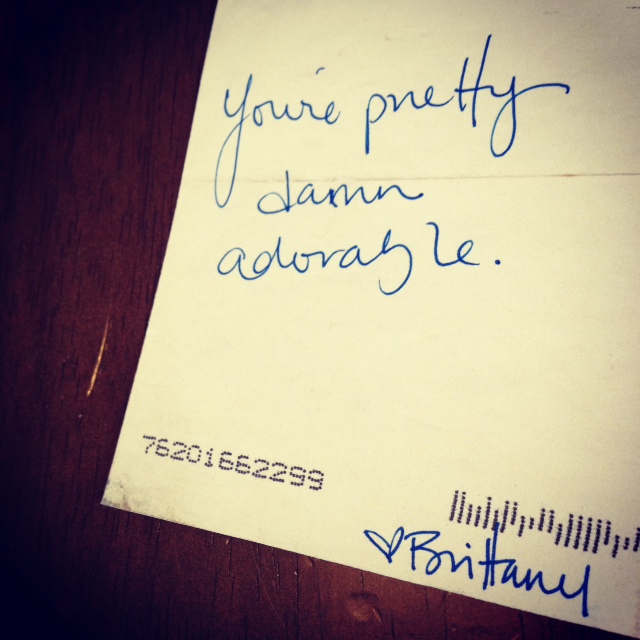 You're pretty
damn
adorable.
76201662299
♥Brittany